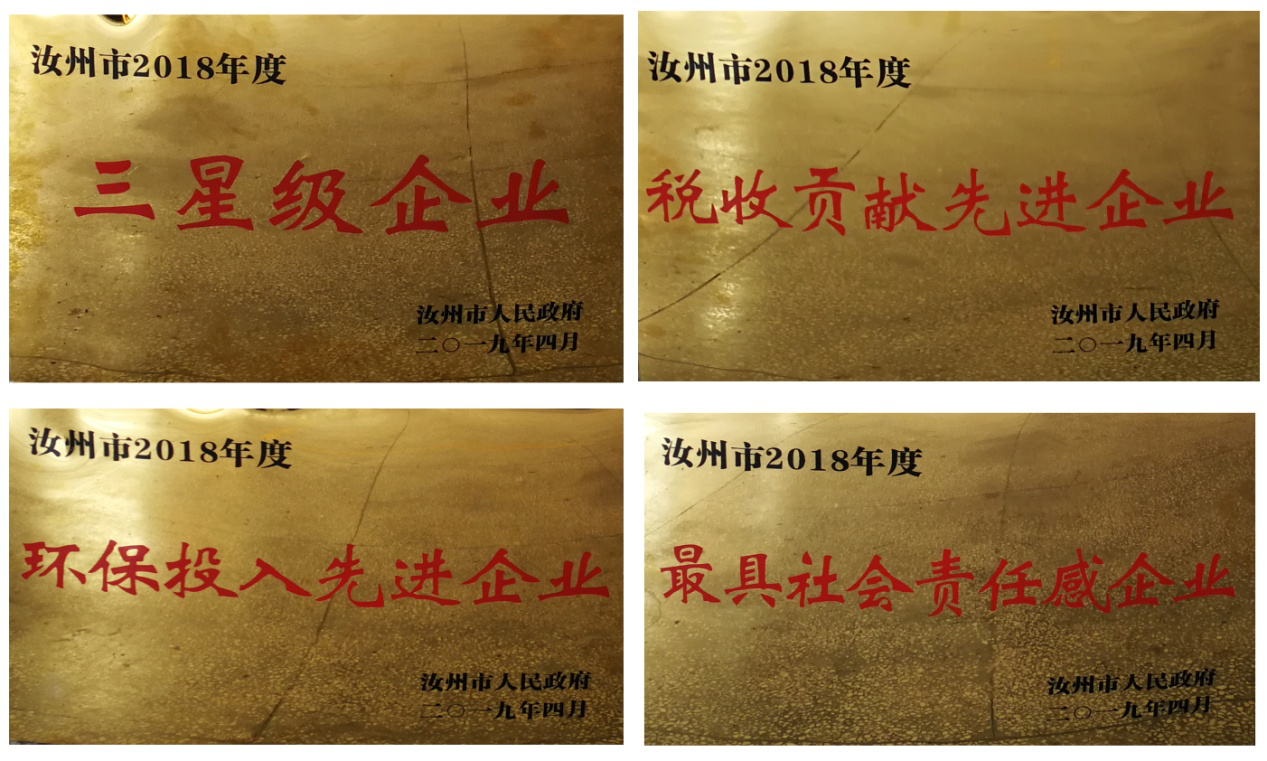 汝州市2018年度
三星级企业
汝州市人民政府
二〇一九年四月
汝州市2018年度
税收贡献先进企业
汝州市人民政府
二〇一九年四月
汝州市2018年度
环保投入先进企业
汝州市人民政府
二〇一九年四月
汝州市2018年度
最具社会责任感企业
汝州市人民政府
二〇一九年四月